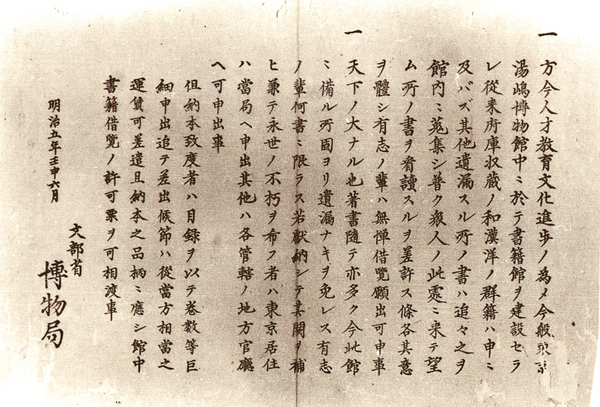 一 方今人才教育文化進歩ノ為メ今般東京
湯嶋博物館中ニ於テ書籍館ヲ建設セラ
レ從来所庫収蔵ノ和漢洋ノ群籍ハ申ニ
及バズ其他遺漏スル所ノ書ハ追々之ヲ
館内ニ蒐集シ普ク衆人ノ此處ニ来テ望
ム所ノ書ヲ看讀スルヲ差許ス條各其意
ヲ體シ有志ノ輩ハ無憚借覧願出可申事
一 天下ノ大ナル也著書隨テ亦多ク今此館
ニ備ル所固ヨリ遺漏ナキヲ免レス有志
ノ輩何書ニ限ラス若献納シテ其闕ヲ補
ヒ兼テ永世ノ不朽ヲ希フ者ハ東京居住
ハ當局ヘ申出其他ハ各管轄ノ地方官廳
ヘ可申出事
但納本致度者ハ目録ヲ以テ巻數等巨
細申出追テ差出候節ハ從當方相當之
運賃可差遣且納本之品柄ニ應シ館中
書籍借覧ノ許可票ヲ可相渡事
明治五年壬申六月
文部省
博物局